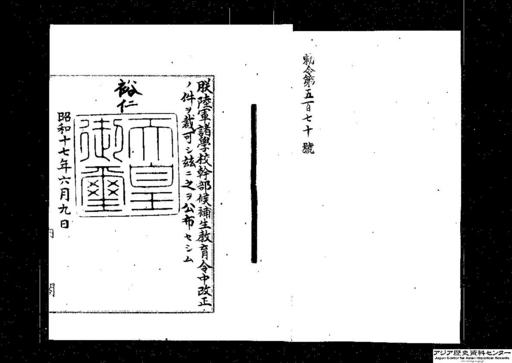 勅令第五百七十號
朕陸軍諸學校幹部候補生敎育令中改正
ノ件ヲ裁可シ玆ニ之ヲ公布セシム
裕仁
天皇
御璽
昭和十七年六月九日
内閣
アジア歴史資料センター
Japan Center for Asian Historical Records